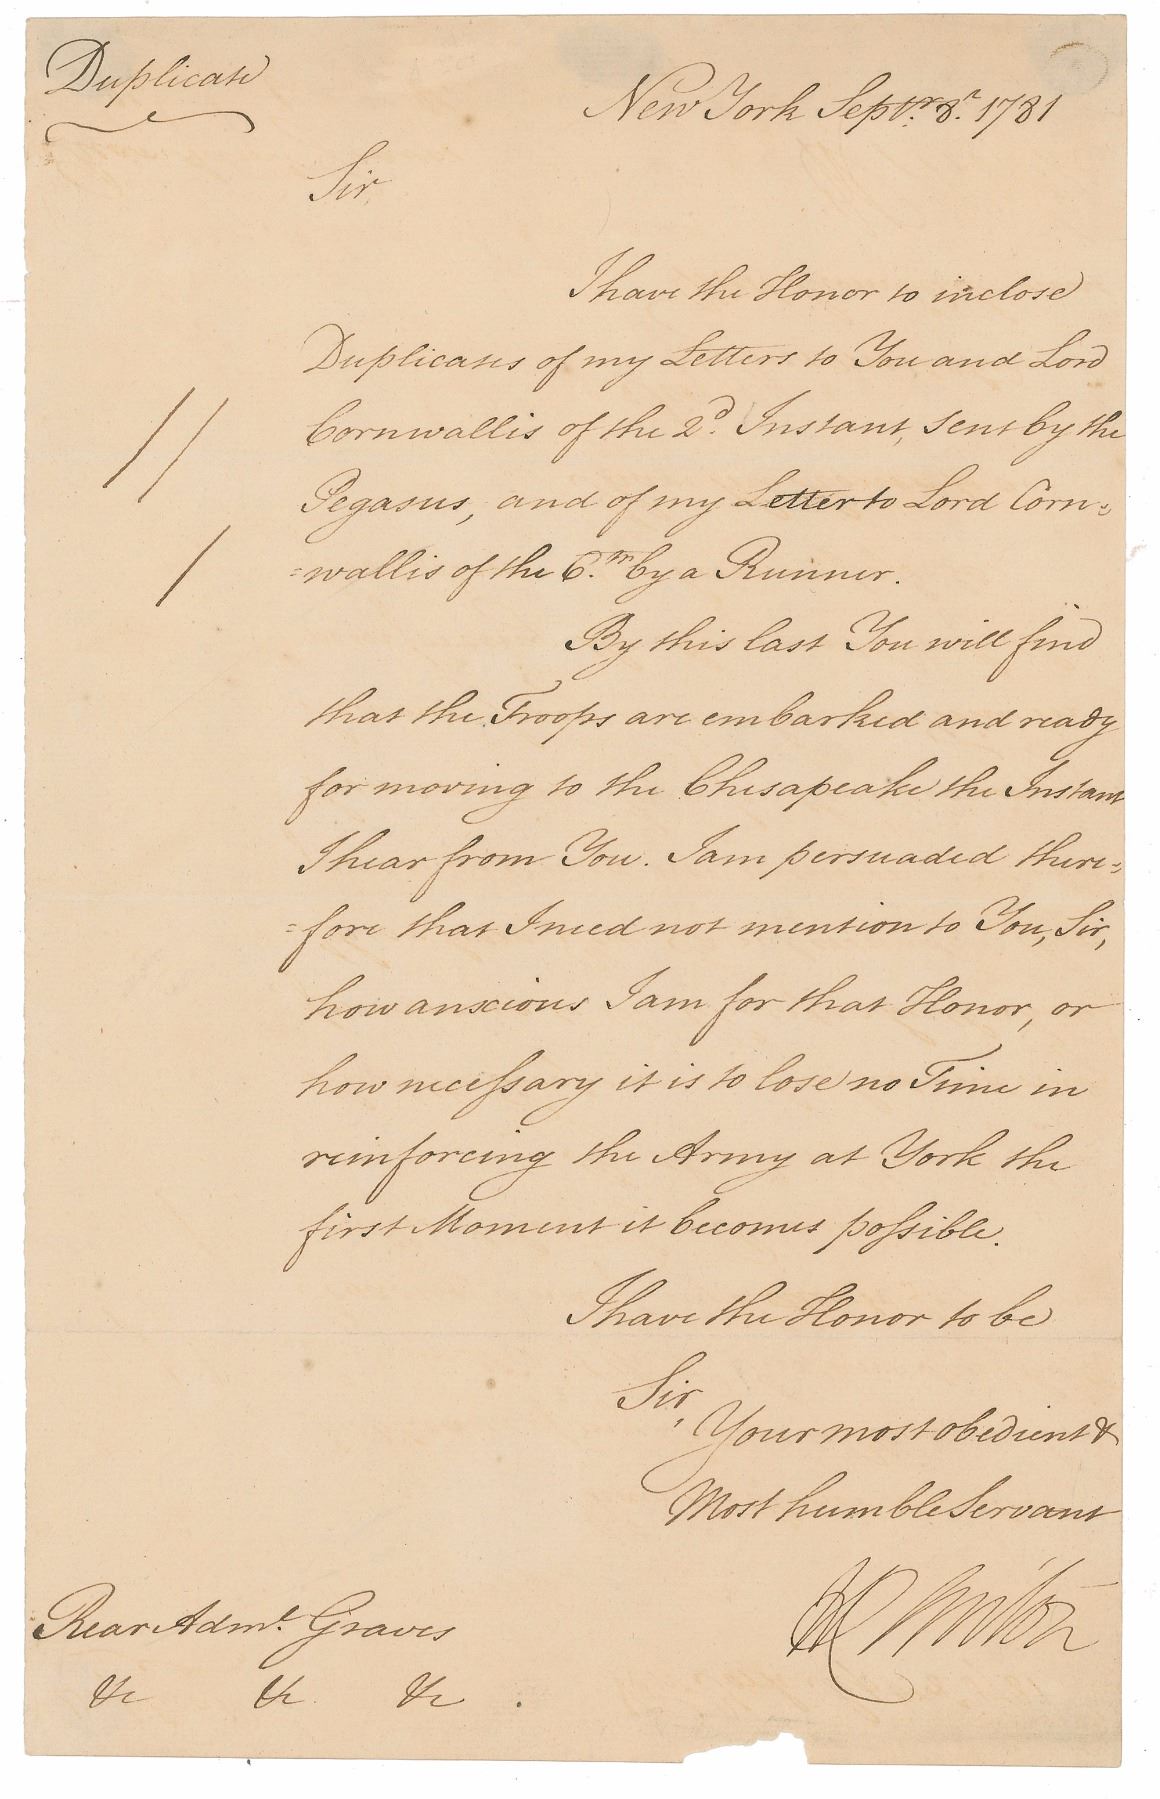 Duplicate
New York Septr. 8th. 1781
Sir
I have the Honor to inclose
Duplicates of my Letters to You and Lord
Cornwallis of the 2d. Instant, sent by the
Pegasus, and of my Letter to Lord Corn=
=wallis of the 6.th by a Runner.
By this last You will find
that the Troops are embarked and ready
for moving to the Chesapeake the Instant
I hear from You. I am persuaded there=
=fore that I need not mention to You, Sir,
how anxious I am for that Honor, or
how necessary it is to lose no Time in
reinforcing the Army at York the
first Moment it becomes possible.
I have the Honor to be
Sir,
Your most obedient &
Most humble Servant
H Clinton
Rear Adml. Graves
&c &c &c .